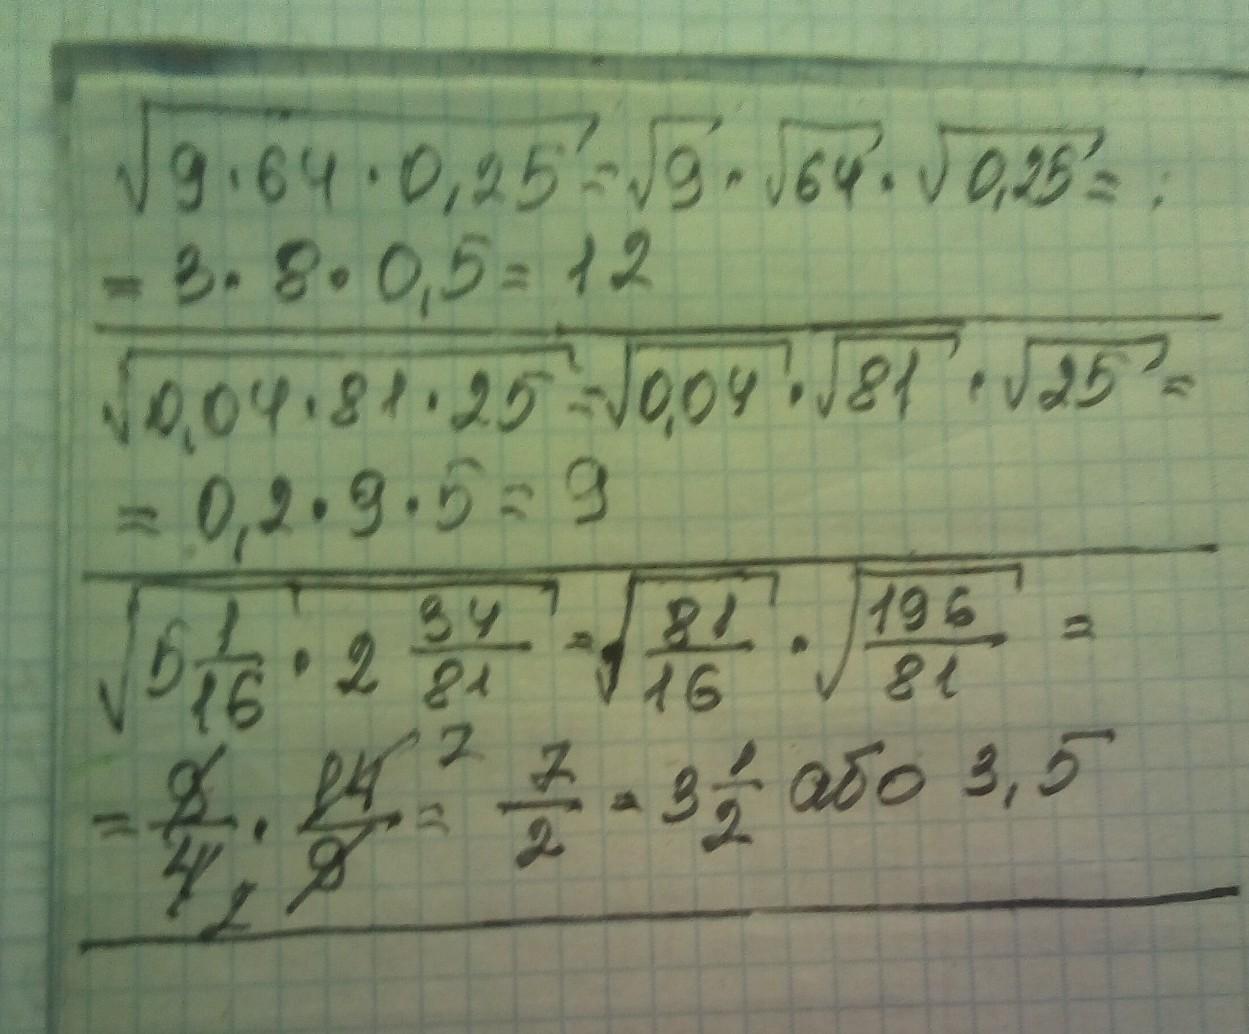 √9·64·0,25 = √9 · √64 · √0,25 =
= 3·8·0,5 = 12
√0,04·81·25 = √0,04 · √81 · √25 =
= 0,2·9·5 = 9
√5 1/16 · 2 34/81 = √81/16 · √196/81 =
= 9/4 2 · 14/9 7 = 7/2 = 3 1/2 або 3,5